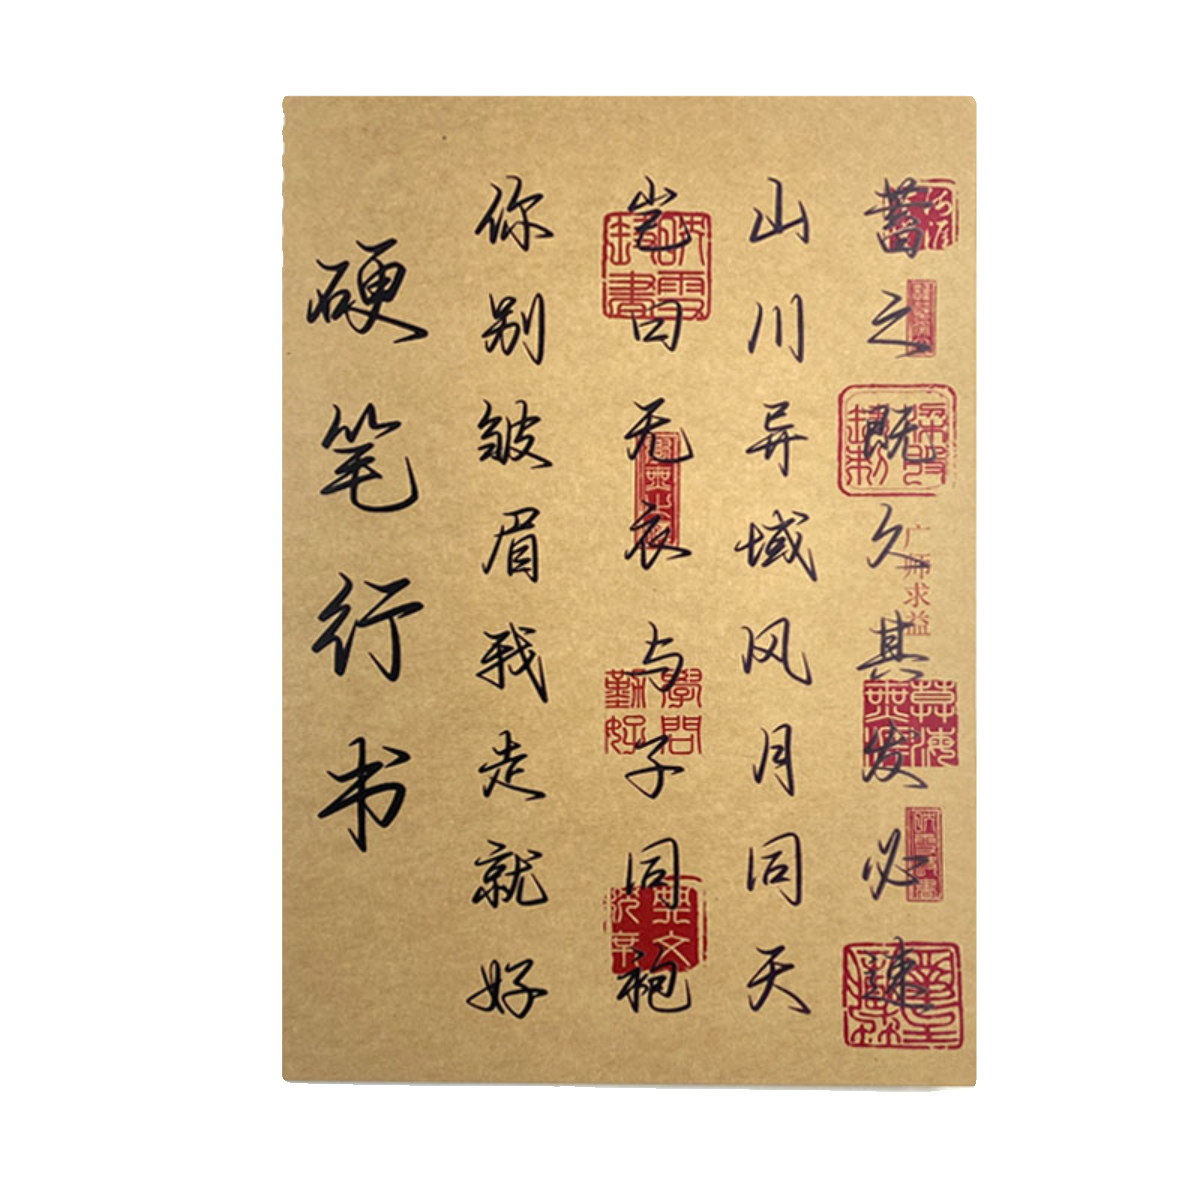 蓄之既久其发必速
山川异域风月同天
岂曰无衣与子同袍
你别皱眉我走就好
硬笔行书
广师求益
學問
勤好